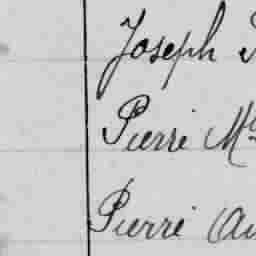 Joseph
Pierre Mc
Pierre